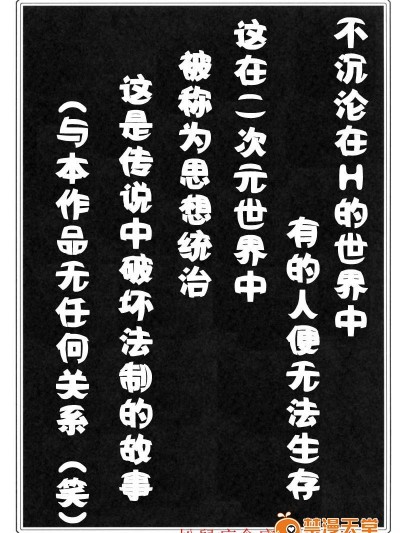 不沉沦在H的世界中
有的人便无法生存
这在二次元世界中
被称为思想统治
这是传说中破坏法制的故事
（与本作品无任何关系（笑）
禁漫天堂